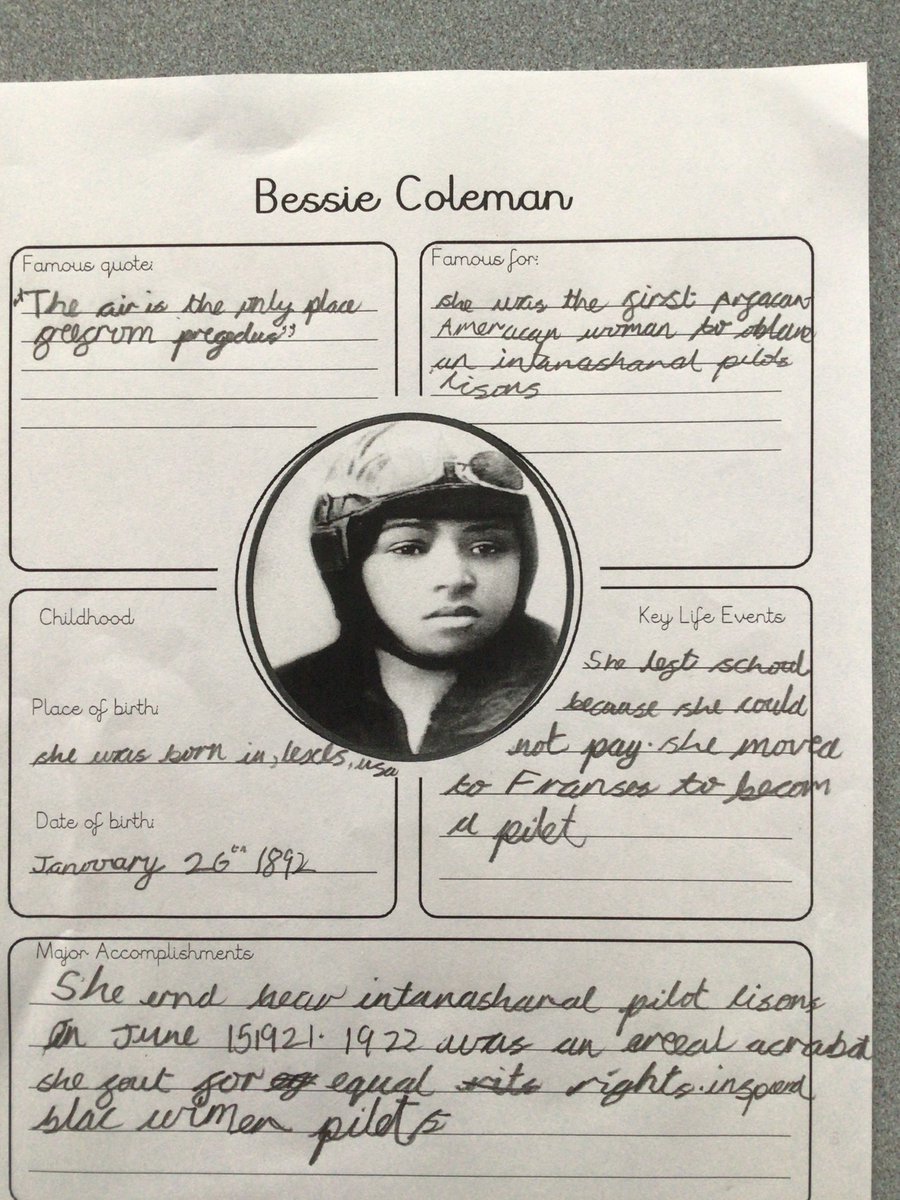 Bessie Coleman
Famous quote:
"The air is the only place
greegrom pregedus"
Famous for:
she was the first Argacan
American woman to obtane
an intanashanal pilots
lisons
Childhood
Place of birth:
she was born in, texels, usa
Date of birth:
Janovary 26th 1892
Key Life Events
She left school
because she could
not pay. she moved
to Franses to becom
a pilot
Major Accomplishments
She ernd hear intanashanal pilot lisons
On June 151921. 1922 was an areeal acrabat
she fout for equal rights. inspierd
blac wimen pilots